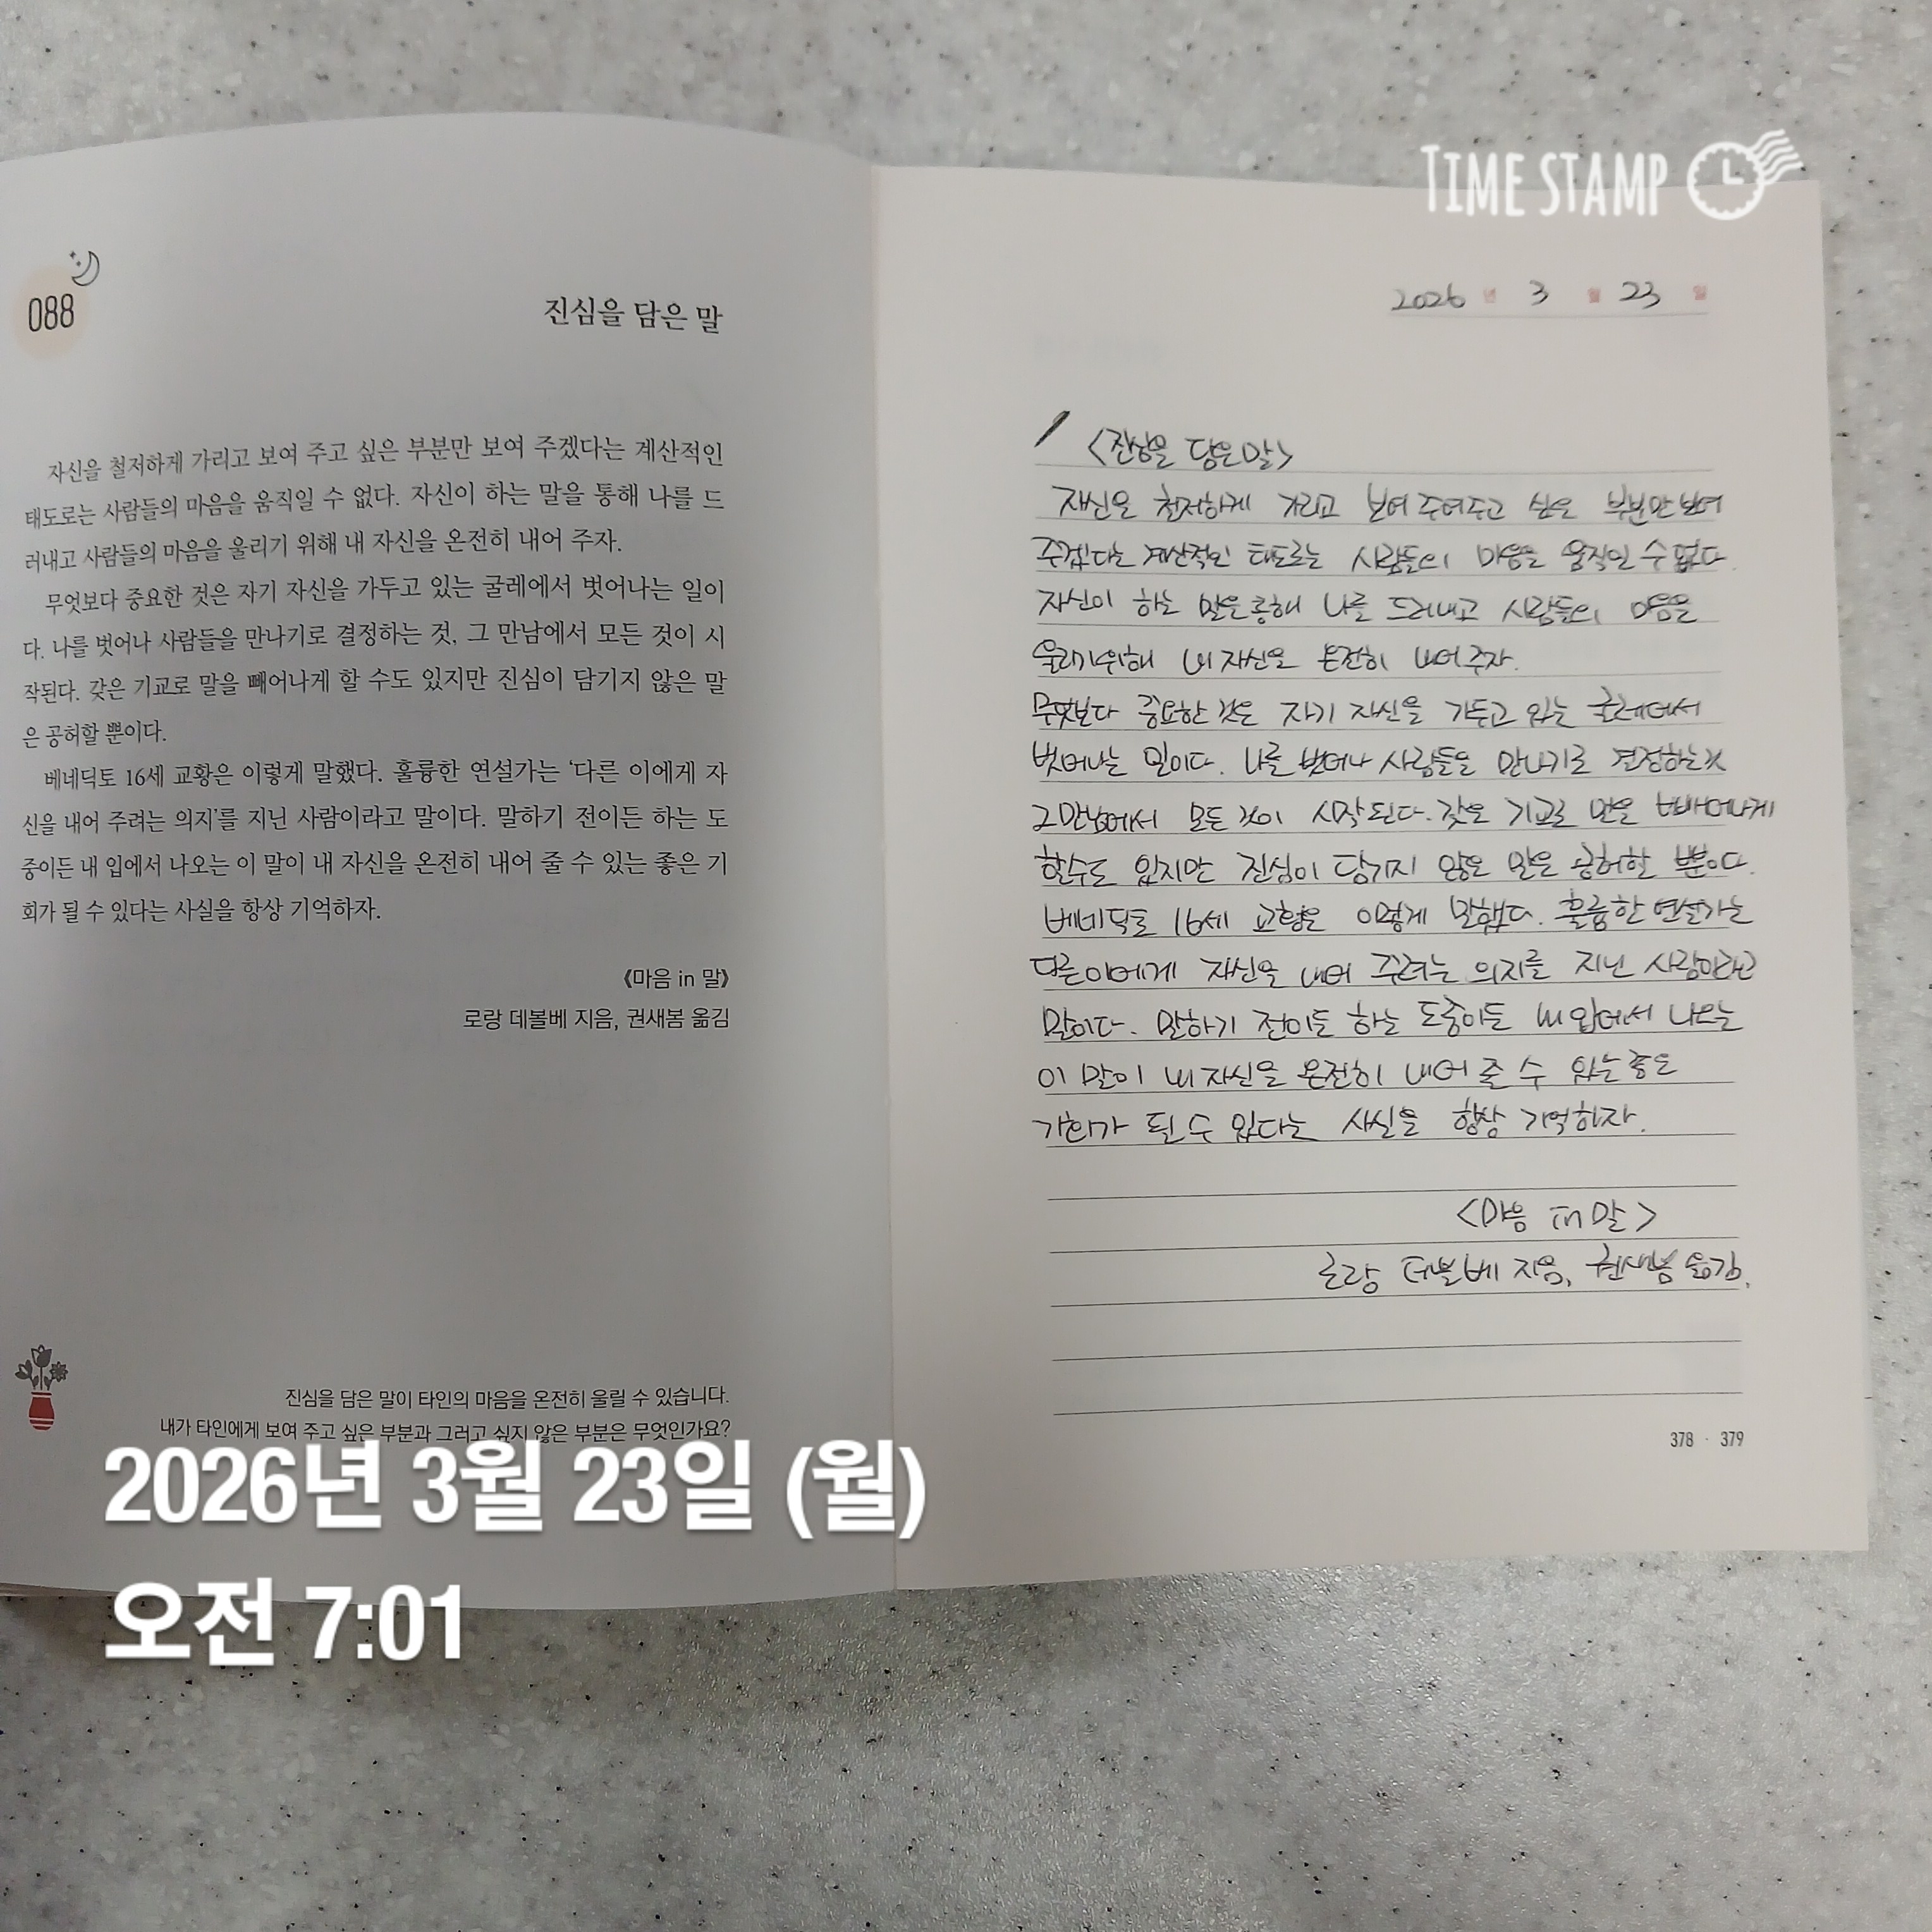 TIME STAMP
088
진심을 담은 말
자신을 철저하게 가리고 보여 주고 싶은 부분만 보여 주겠다는 계산적인
태도로는 사람들의 마음을 움직일 수 없다. 자신이 하는 말을 통해 나를 드
러내고 사람들의 마음을 울리기 위해 내 자신을 온전히 내어 주자.
무엇보다 중요한 것은 자기 자신을 가두고 있는 굴레에서 벗어나는 일이
다. 나를 벗어나 사람들을 만나기로 결정하는 것, 그 만남에서 모든 것이 시
작된다. 갖은 기교로 말을 빼어나게 할 수도 있지만 진심이 담기지 않은 말
은 공허할 뿐이다.
베네딕토 16세 교황은 이렇게 말했다. 훌륭한 연설가는 ‘다른 이에게 자
신을 내어 주려는 의지’를 지닌 사람이라고 말이다. 말하기 전이든 하는 도
중이든 내 입에서 나오는 이 말이 내 자신을 온전히 내어 줄 수 있는 좋은 기
회가 될 수 있다는 사실을 항상 기억하자.
《마음 in 말》
로랑 데볼베 지음, 권새봄 옮김
진심을 담은 말이 타인의 마음을 온전히 울릴 수 있습니다.
내가 타인에게 보여 주고 싶은 부분과 그러고 싶지 않은 부분은 무엇인가요?
2026년 3월 23일
<진심을 담은 말>
자신을 철저하게 가리고 보여 주여주고 싶은 부분만 보여
주겠다는 계산적인 태도로는 사람들의 마음을 움직일 수 없다.
자신이 하는 말을 통해 나를 드러내고 사람들의 마음을
울리기 위해 내 자신을 온전히 내어 주자.
무엇보다 중요한 것은 자기 자신을 가두고 있는 굴레에서
벗어나는 일이다. 나를 벗어나 사람들을 만나기로 결정하는 것
그 만남에서 모든 것이 시작된다. 갖은 기교로 말을 빼어나게
할수도 있지만 진심이 담기지 않은 말은 공허할 뿐이다.
베네딕토 16세 교황은 이렇게 말했다. 훌륭한 연설가는
다른이에게 자신을 내어 주려는 의지를 지닌 사람이라고
말이다. 말하기 전이든 하는 도중이든 내 입에서 나오는
이 말이 내 자신을 온전히 내어 줄 수 있는 좋은
기회가 될 수 있다는 사실을 항상 기억하자.
<마음 in 말>
로랑 데볼베 지음, 권새봄 옮김.
378 · 379
2026년 3월 23일 (월)
오전 7:01